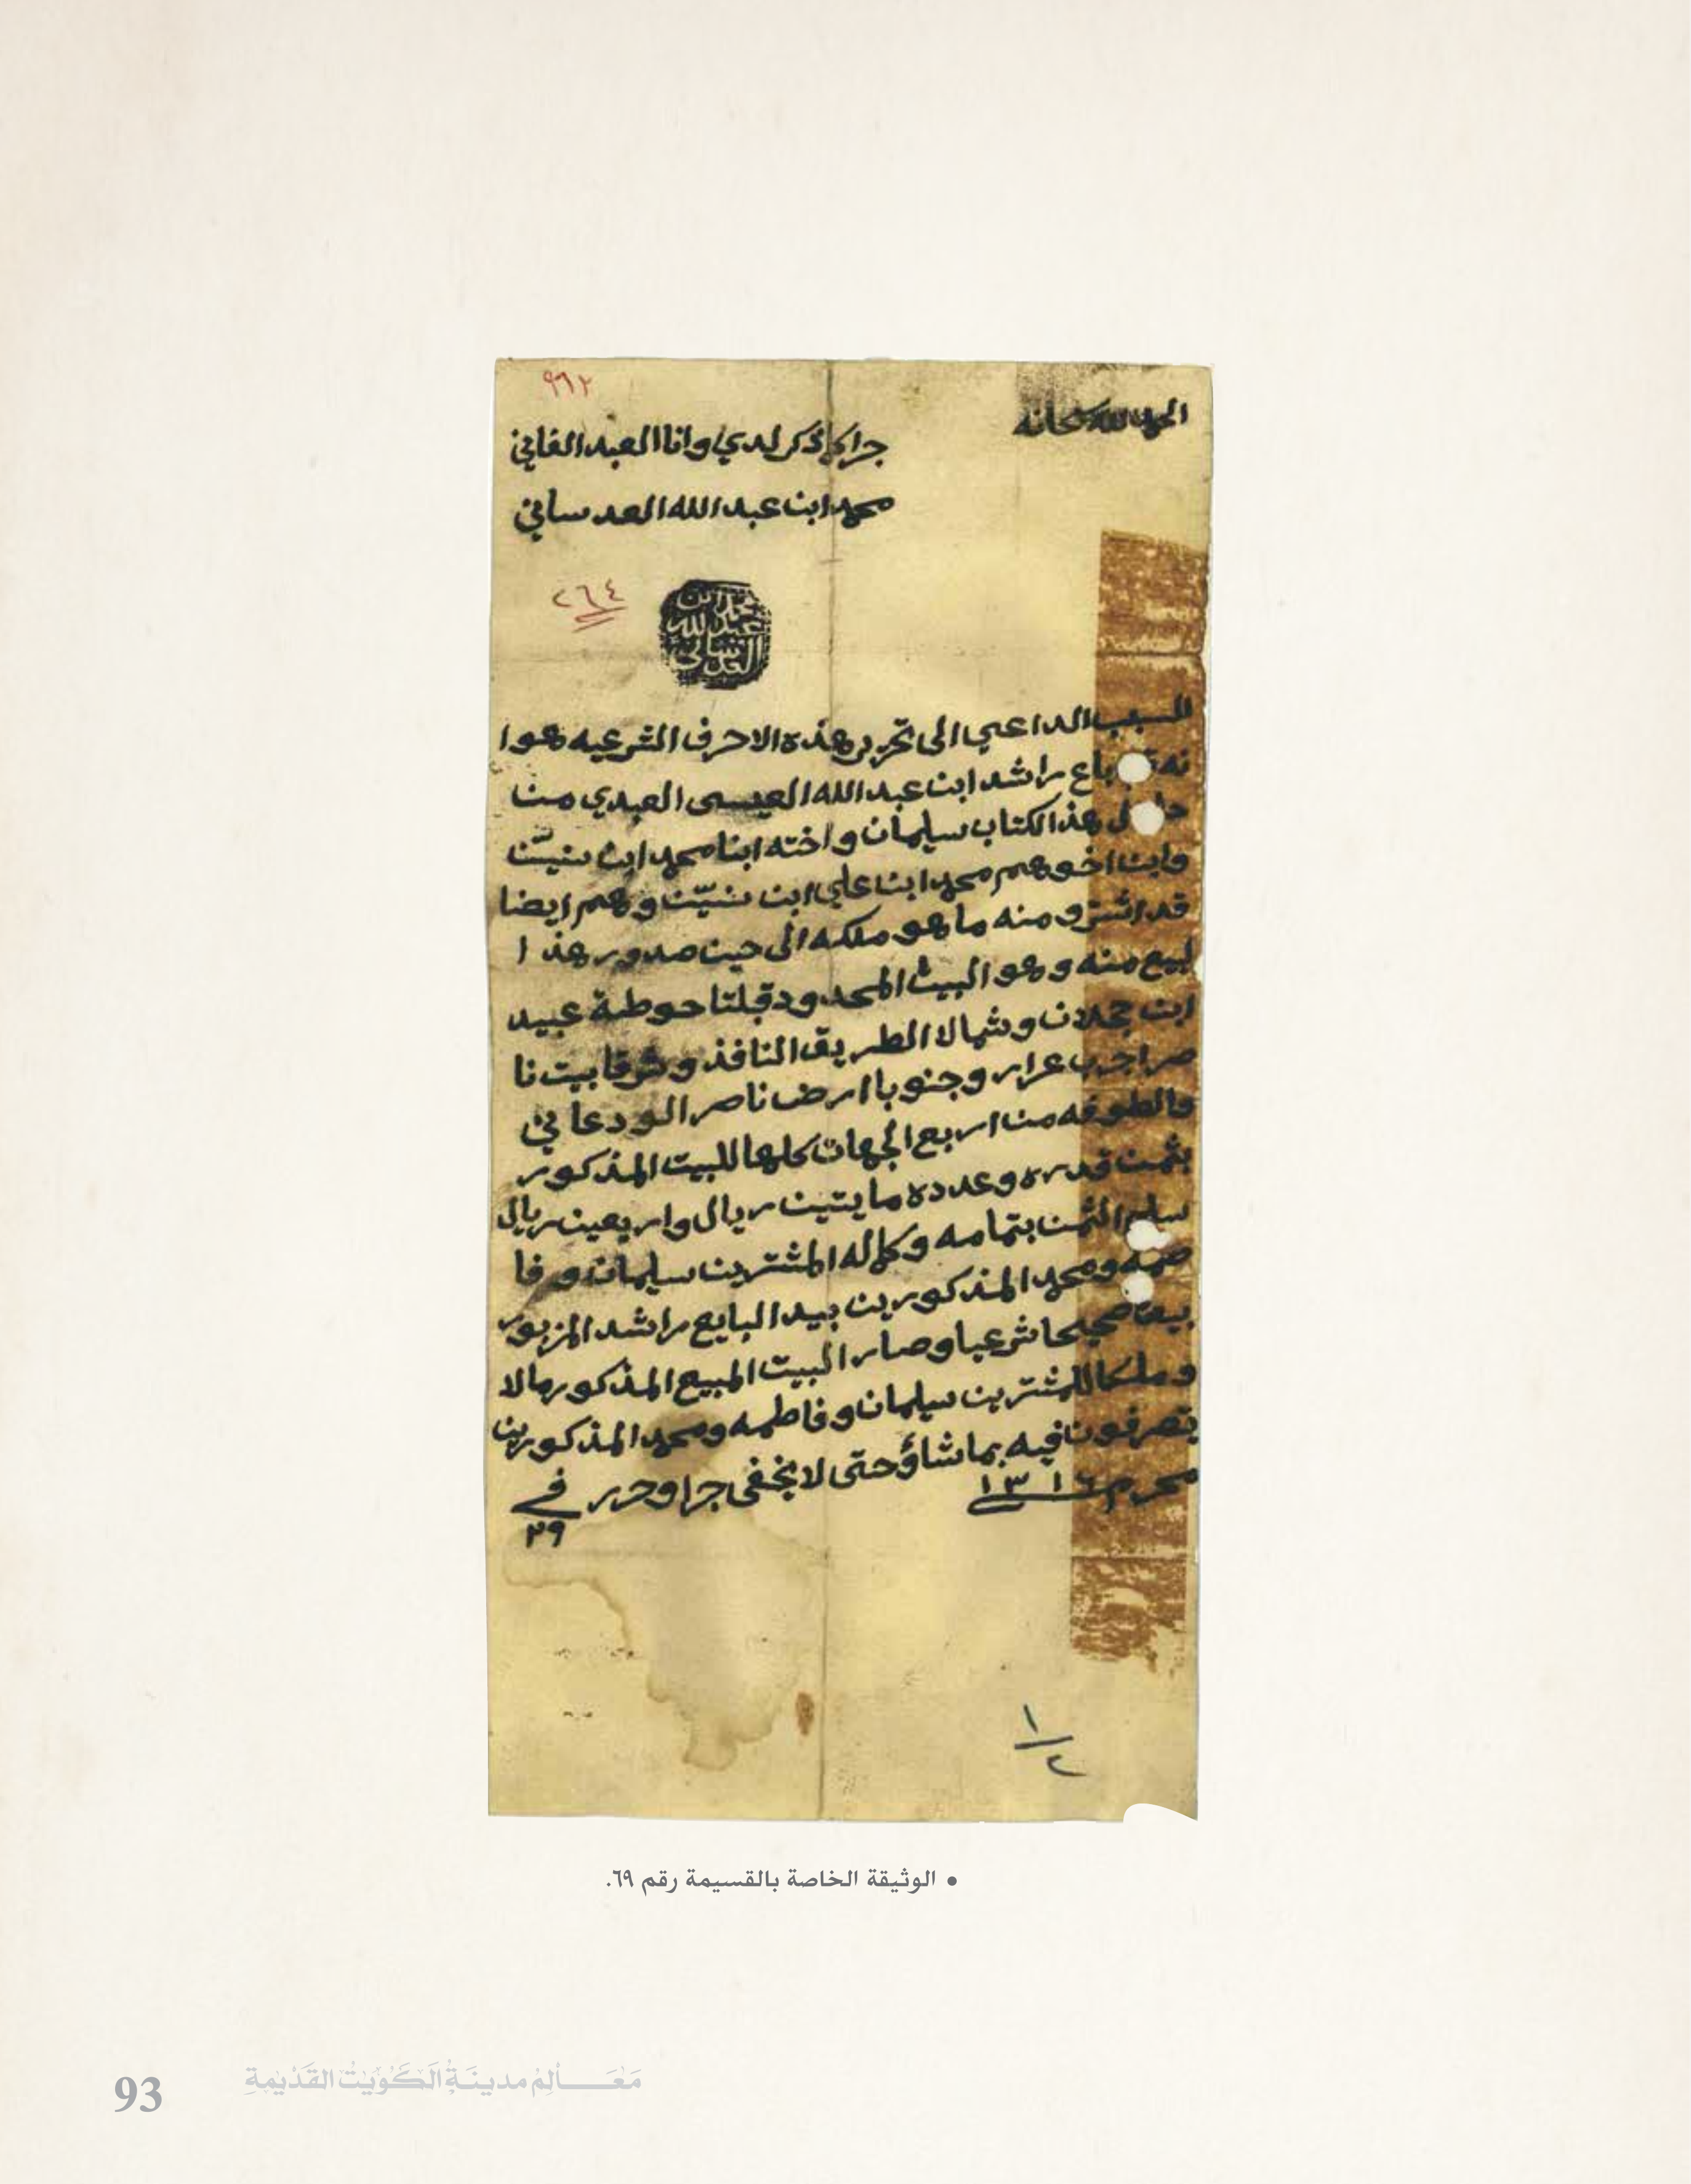 ٩٩٢
الحمد لله سبحانه
جرا كما ذكر لدي وانا العبد الفاني
محمد ابن عبد الله العدساني
٢٦٤
محمد ابن
عبد الله
العدساني
السبب الداعي الى تحرير هذه الاحرف الشرعيه هوا
نه باع راشد ابن عبد الله العيسى العبدي من
هذا الكتاب سليمان و اخته ابنا محمد ابن بنيّن
وابن اخوهم محمد ابن علي ابن بنيّن وهم ايضا
قد اشترو منه ما هو ملكه الى حين صدور هذ ا
لبيع منه وهو البيت المحدود قبلتا حوطة عبيد
ابن جحلان وشمالا الطريق النافذ وشرقا بيت نا
صر عرار وجنوبا ارض ناصر الودعاني
والطوفه من اربع الجهات كلها للبيت المذكور
بثمن قدره وعدده مايتين ريال واربعين ريال
سلم الثمن بتمامه وكماله المشترين سليمان وفا
طمه ومحمد المذكورين بيد البايع راشد المزبور
بيعا صحيحا شرعيا وصار البيت المبيع المذكور مالا
وملكا للمشترين سليمان وفاطمه ومحمد المذكورين
يتصرفون فيه بما شاؤ حتى لا يخفى جرا وحرر في
٢٩
محرم ١٣١٦
١/٢
• الوثيقة الخاصة بالقسيمة رقم ٦٩.
مَعَـالِمْ مدينَـةُ الكُوَيْتْ القَدْيْمةِ
93